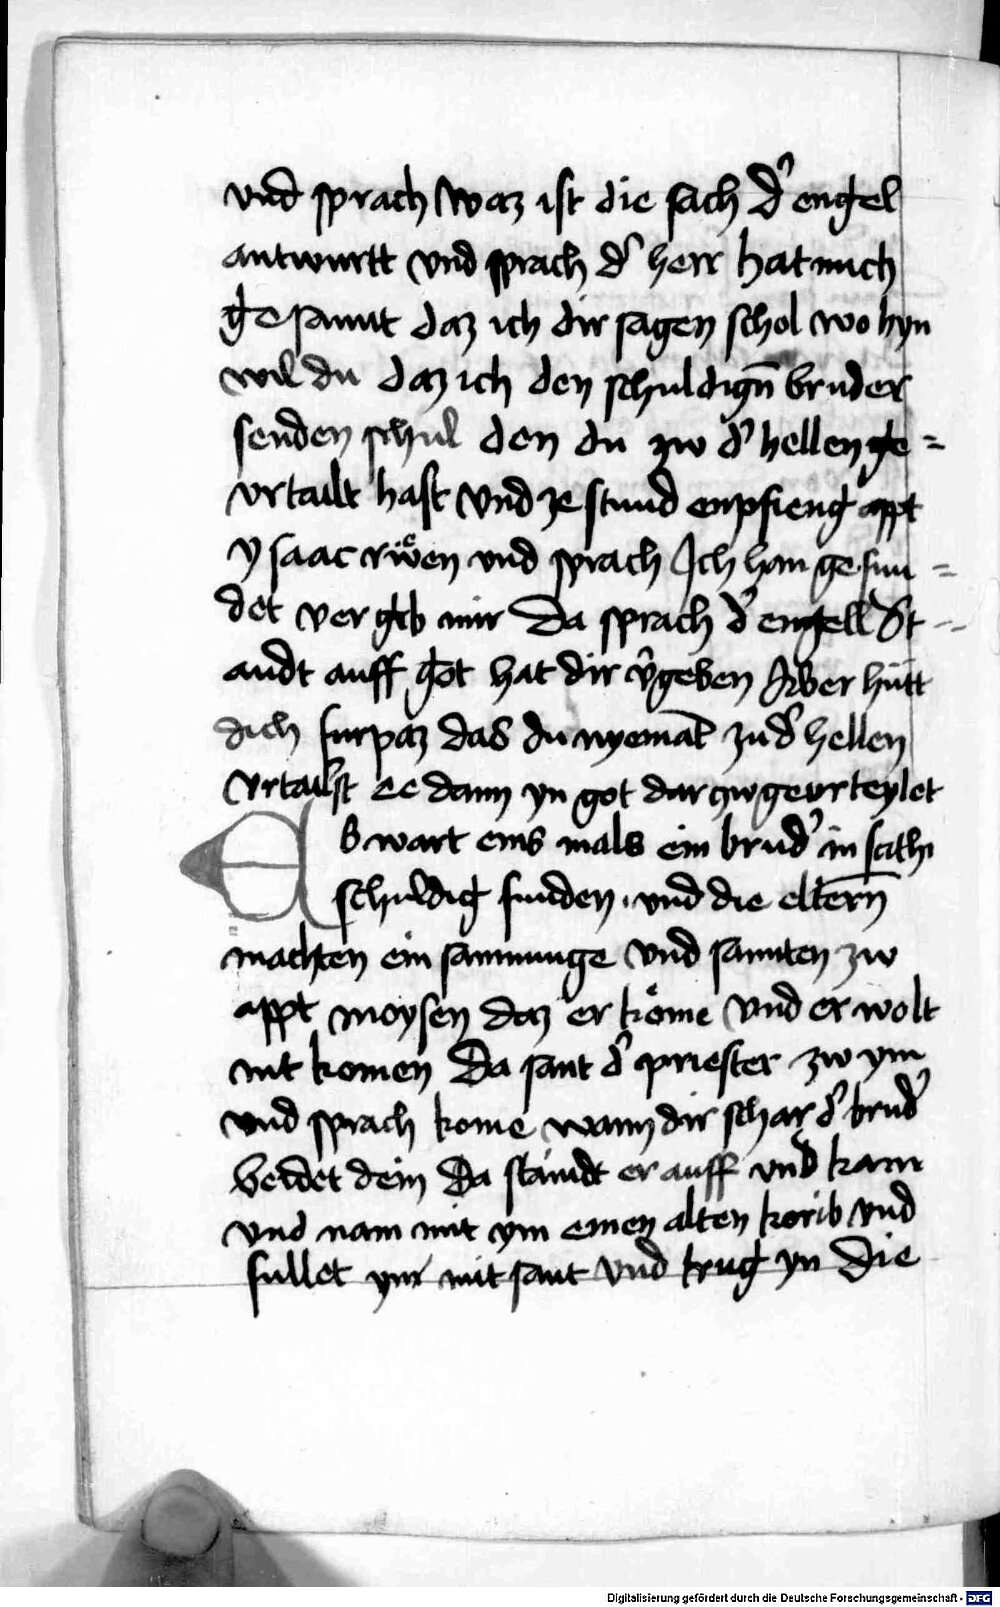 vnd sprach waz ist die sach d' engel
antwurtt vnd sprach d' herr hat mich
gesannt daz ich dir sagen schol wo hyn
wil du daz ich den schuldign̄ bruder
senden schul den du zw d' hellen ge=
vrtailt hast vnd ze stund enpfieng appt
ysaac rẘen vnd sprach Ich han gesun=
det vergib mir Da sprach d' engell St-
andt auff got hat dir v'geben Aber hütt
dich furpaz das du nyemāt zu d' hellen
vrtailst ee dann yn got dar zw geurteylet
Es wart eins mals ein brud' in scithi
schuldig funden. vnd die eltern̄
machten ein sammunge vnd sannten zw
appt moysen daz er kome vnd er wolt
nit komen Da sant d' priester zw ym
vnd sprach kome wann dir schar d' brud'
beidet dein Da standt er auff vnd kam
vnd nam mit ym einen alten korib vnd
fullet ynn mit sant vnd trug yn die
Digitalisierung gefördert durch die Deutsche Forschungsgemeinschaft - DFG